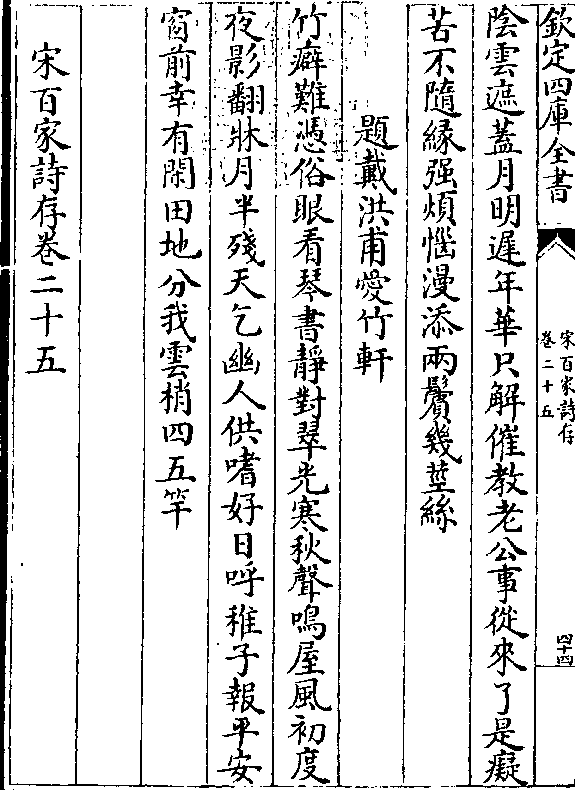 欽定四庫全書
宋百家詩存
卷二十五
四十四
陰雲遮蓋月明遲年華只解催教老公事從來了是癡
苦不隨緣强煩惱漫添兩鬢幾莖絲
題戴洪甫愛竹軒
竹癖難憑俗眼看琴書靜對翠光寒秋聲鳴屋風初度
夜影翻牀月半殘天乞幽人供嗜好日呼稚子報平安
窗前幸有閑田地分我雲梢四五竿
宋百家詩存卷二十五